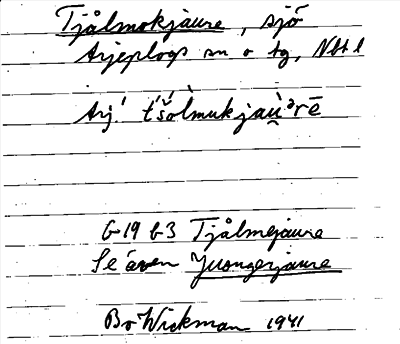 Tjålmokjaure, sjö
Arjeplogs sn o tg, Nbt l
Arj. t́š́ålmukjau̯ràᵊrē
G-19 b3 Tjålmejaure
Se även Jusngerjaure
Bo Wickman 1941